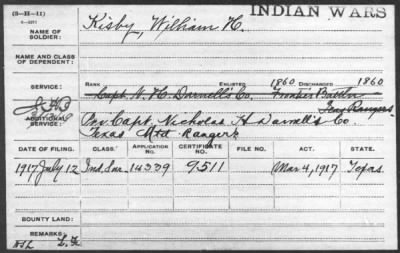 (3-H-11)
INDIAN WARS
NAME OF SOLDIER: Kisby, William H.
NAME AND CLASS OF DEPENDENT:
RANK ENLISTED 1860 DISCHARGED 1860
SERVICE: Capt. N. H. Darnell's Co. Frontier Battn
Texas Rangers.
ADDITIONAL SERVICE: Pvt. Capt. Nicholas H Darnell's Co.
Texas Mtd. Rangers
DATE OF FILING. CLASS. APPLICATION NO. CERTIFICATE NO. FILE NO. ACT. STATE.
1917 July 12 Ind. Sur. 14339 9511 Mar 4, 1917 Texas.
BOUNTY LAND:
REMARKS: